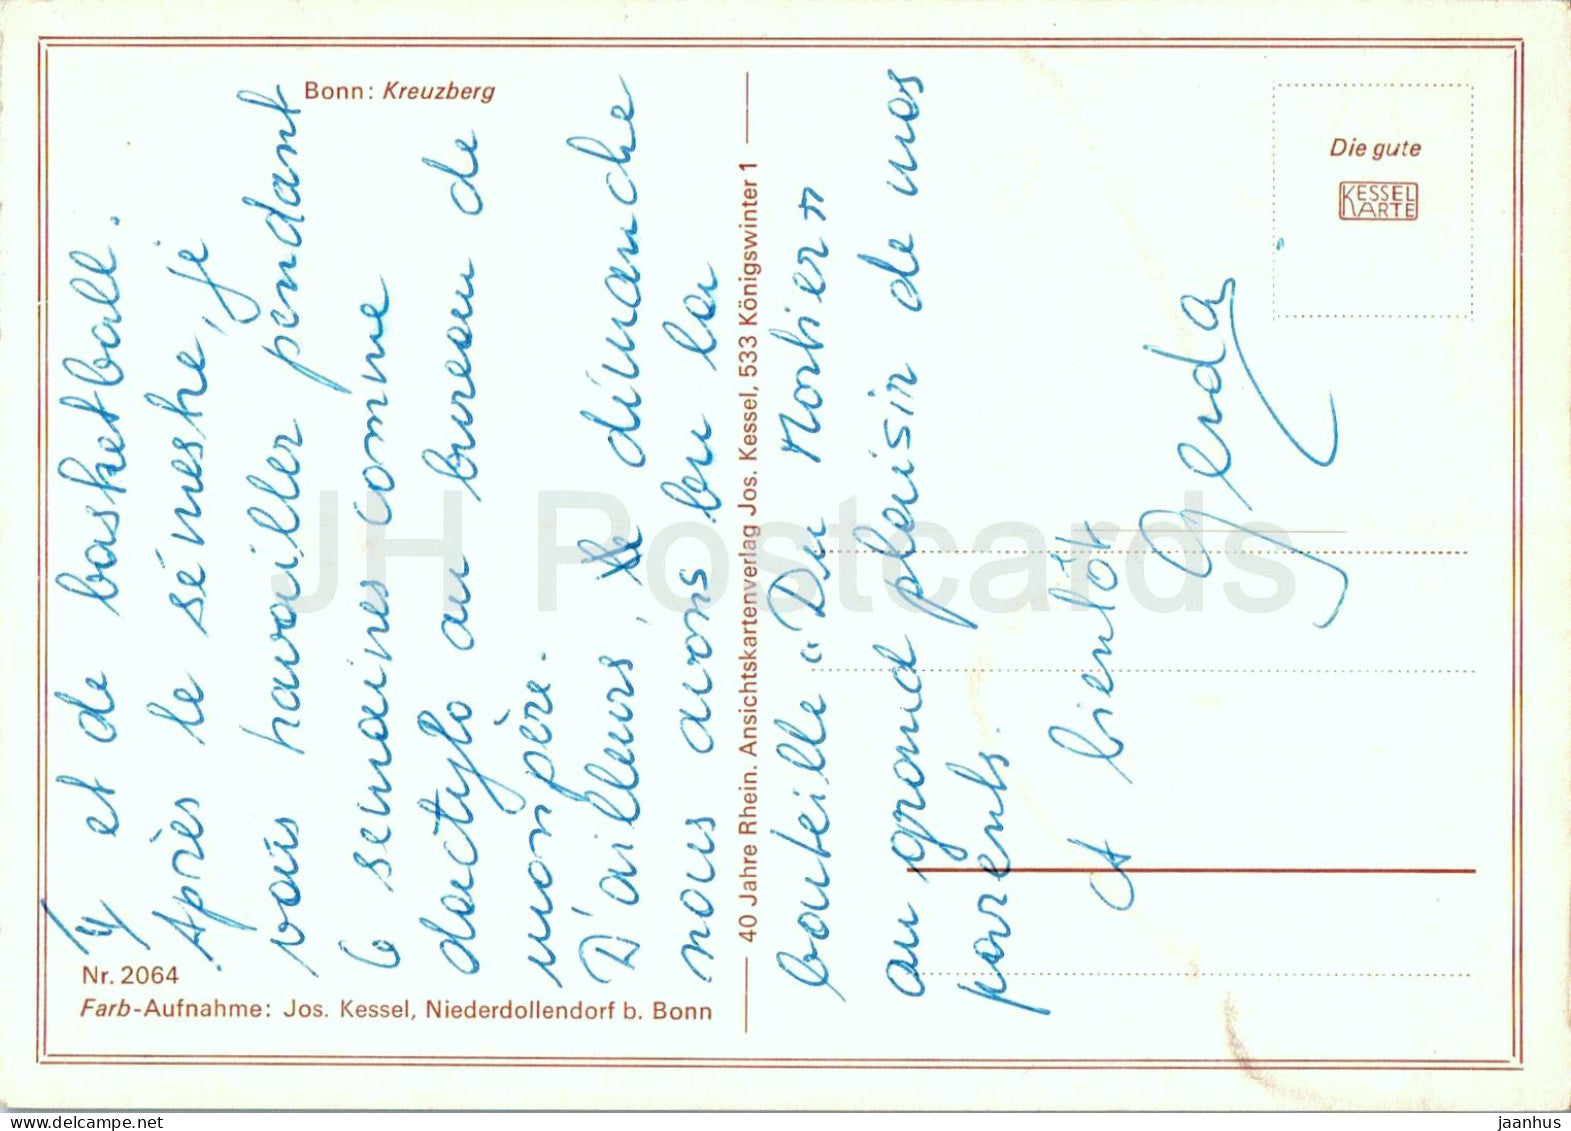 Bonn: Kreuzberg
Die gute
KESSEL
KARTE
4) et de basketball.
Après le sémestre, je
vais travailler pendant
6 semaines comme
dactylo au bureau de
mon père.
D'ailleurs, le dimanche
nous avons bu la
bouteille "Du Mortier"
au grand plaisir de mes
parents.
A bientôt
Gerda
40 Jahre Rhein. Ansichtskartenverlag Jos. Kessel, 533 Königswinter 1
Nr. 2064
Farb-Aufnahme: Jos. Kessel, Niederdollendorf b. Bonn
JH Postcards
www.delcampe.net
jaanhus